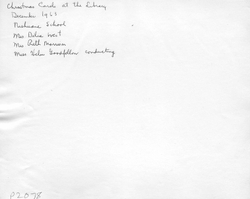 Christmas Carols at the Library
December 1961
School
Mrs. Delia West
Mrs Ruth
Miss Goodfellow conducting
P2078